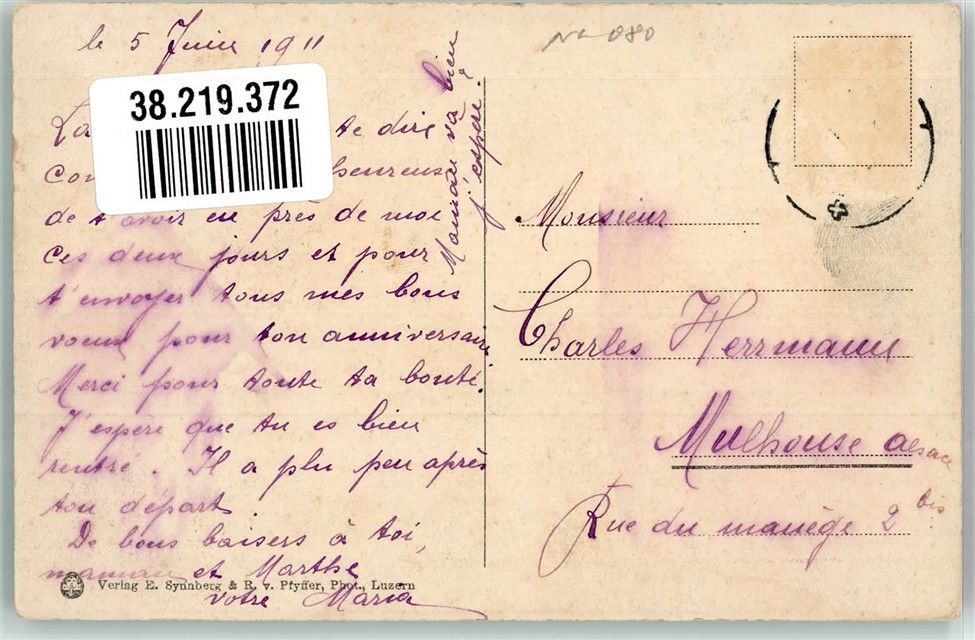 le 5 Juin 1911
No 080
38.219.372
La te dire
heureuse
de t'avoir eu près de moi
ces deux jours et pour
t'envoyer tous mes bons
voeux pour ton anniversaire
Merci pour toute ta bonté.
J'espère que tu es bien
rentré. Il a plu peu après
ton départ.
De bons baisers à toi,
maman et Marthe
votre Maria
Maman va bien
j'espère?
Verlag E. Synnberg & R. v. Pfyffer, Phot., Luzern
Monsieur
Charles Herrmann
Mulhouse alsace
Rue du manège 2 bis.